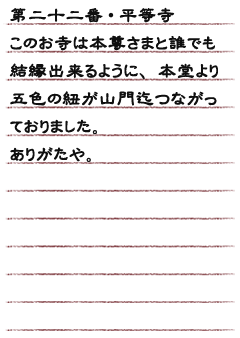 第二十二番・平等寺
このお寺は本尊さまと誰でも
結縁出来るように、本堂より
五色の紐が山門迄つながっ
ておりました。
ありがたや。